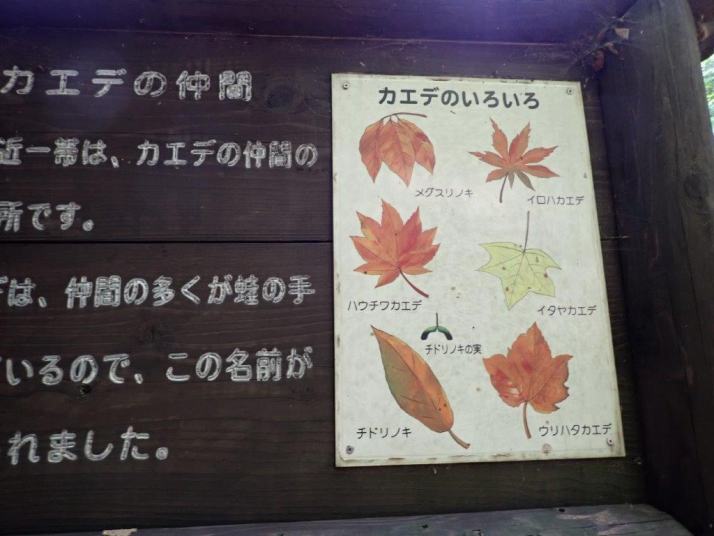 カエデの仲間
近一帯は、カエデの仲間の
所です。
デは、仲間の多くが蛙の手
いるので、この名前が
れました。
カエデのいろいろ
メグスリノキ
イロハカエデ
ハウチワカエデ
イタヤカエデ
チドリノキの実
チドリノキ
ウリハタカエデ